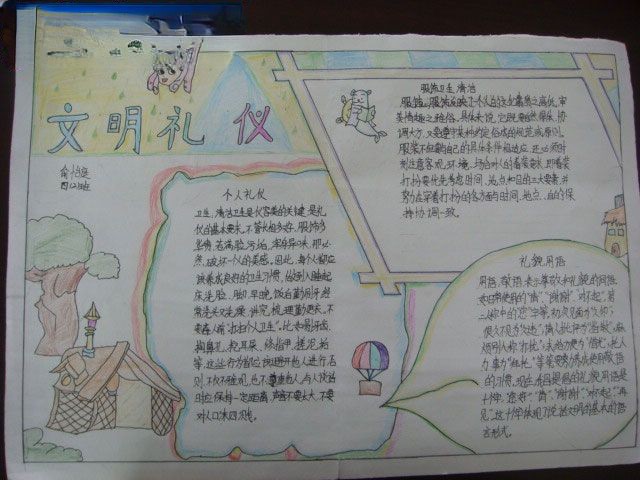 文明礼仪
四(2)班
个人礼仪
卫生:清洁卫生是仪容美的关键,是礼
仪的基本要求。不管长相多好,服饰多
华贵,若满脸污垢,浑身异味,那必
然破坏一个人的美感。因此,每个人都应
该养成良好的卫生习惯,做到入睡起
床洗脸、脚,早晚、饭后勤刷牙,经
常洗头又洗澡,讲究梳理勤更衣。不
要在人前"打扫个人卫生"。比如剔牙齿、
掏鼻孔、挖耳屎、修指甲、搓泥垢
等,这些行为都应该避开他人进行,否
则,不仅不雅观,也不尊重他人。与人谈话
时应保持一定距离,声音不要太大,不要
对人口沫四溅。
服饰卫生 清洁
服饰:服饰反映了一个人的文化素质之高低,审
美情趣之雅俗。具体来说,它既要自然得体,协
调大方,又要遵守某种约定俗成的规范或原则。
服装不但要与自己的具体条件相适应,还必须时
刻注意客观环境、场合对人的着装要求,即着装
打扮要优先考虑时间、地点和目的三大要素,并
努力在穿着打扮的各方面与时间、地点、目的保
持协调一致。
礼貌用语
用语,敬语,表示尊敬和礼貌的词语。
如日常使用的"请"、"谢谢"、"对不起",第
二人称中的"您"字等。初次见面为"久仰";
很久不见为"久违";请人批评为"指教";麻
烦别人称"打扰";求给方便为"借光";托人
办事为"拜托"等等。要努力养成使用敬语
的习惯。现在,我国提倡的礼貌用语是
十个字:"您好"、"请"、"谢谢"、"对不起"、"再
见"。这十个字体现了说话文明的基本的语
言形式。